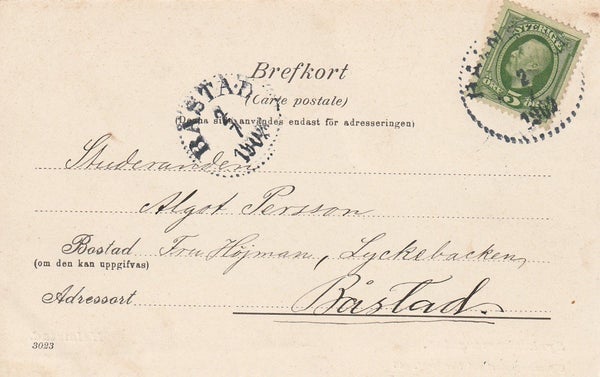 SVERIGE
5
2
Brefkort
(Carte postale)
(Denna sida användes endast för adresseringen)
BÅSTAD
2
7
Studeranden
Algot Persson
Bostad Fru Höjman, Lyckebacken,
(om den kan uppgifvas)
Adressort Båstad.
3023